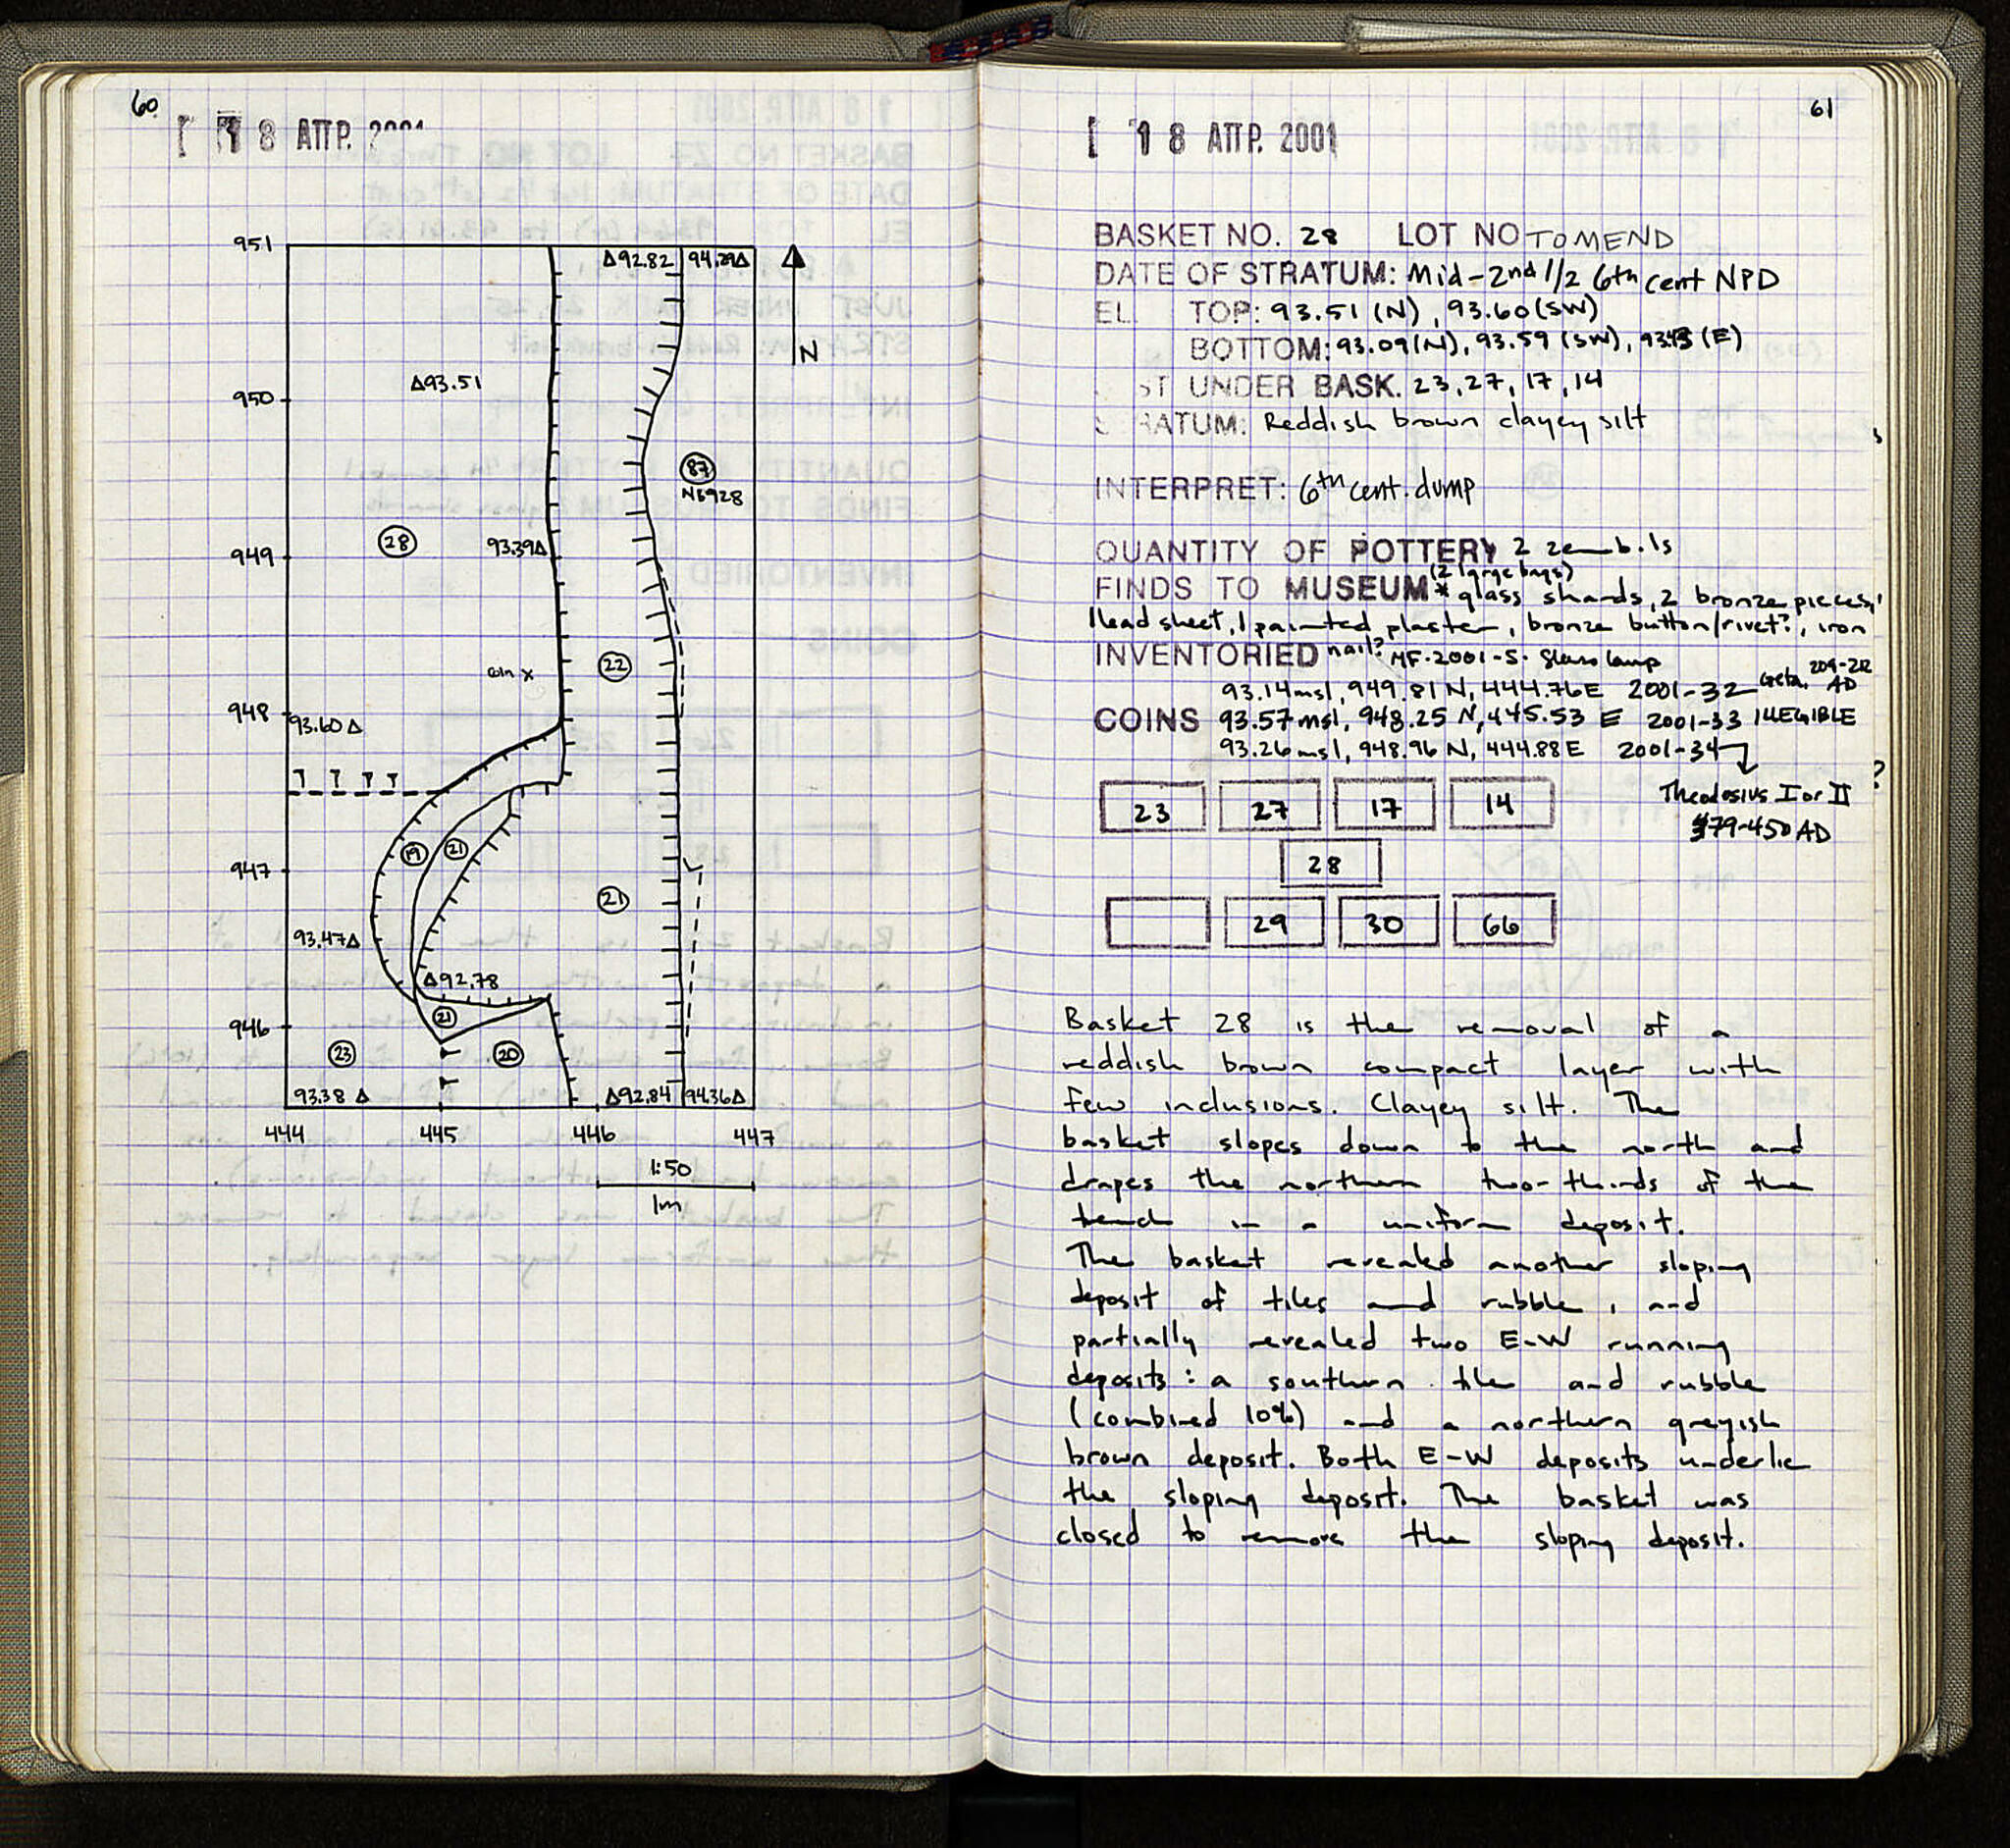 60
18 ΑΠΡ. 2001
951
Δ92.82 94.29Δ
N
Δ93.51
950
87
N6928
28
93.39Δ
949
22
coin x
948
93.60Δ
19
21
947
21
93.47Δ
Δ92.78
21
946
23
20
93.38 Δ
Δ92.84 94.36Δ
444 445 446 447
1:50
1m
61
18 ΑΠΡ. 2001
BASKET NO. 28 LOT NO TO MEND
DATE OF STRATUM: Mid-2nd 1/2 6th cent NPD
EL. TOP: 93.51 (N), 93.60 (SW)
BOTTOM: 93.09 (N), 93.59 (SW), (E)
ST UNDER BASK. 23, 27, 17, 14
RATUM: Reddish brown clayey silt
INTERPRET: 6th cent. dump
QUANTITY OF POTTERY 2 zembils
(2 large bags)
FINDS TO MUSEUM * glass shards, 2 bronze pieces,
1 lead sheet, 1 painted plaster, bronze button/rivet?, iron
INVENTORIED nail? MF-2001-5. Glass lamp
93.14 msl, 949.81 N, 444.76 E 2001-32 Geta, 209-212 AD
COINS 93.57 msl, 948.25 N, 445.53 E 2001-33 ILLEGIBLE
93.26 msl, 948.96 N, 444.88 E 2001-34
Theodosius I or II
379-450 AD
23 27 17 14
28
29 30 66
Basket 28 is the removal of a
reddish brown compact layer with
few inclusions. Clayey silt. The
basket slopes down to the north and
drapes the northern two-thirds of the
trench in a uniform deposit.
The basket revealed another sloping
deposit of tiles and rubble, and
partially revealed two E-W running
deposits: a southern tile and rubble
(combined 10%) and a northern greyish
brown deposit. Both E-W deposits underlie
the sloping deposit. The basket was
closed to remove the sloping deposit.